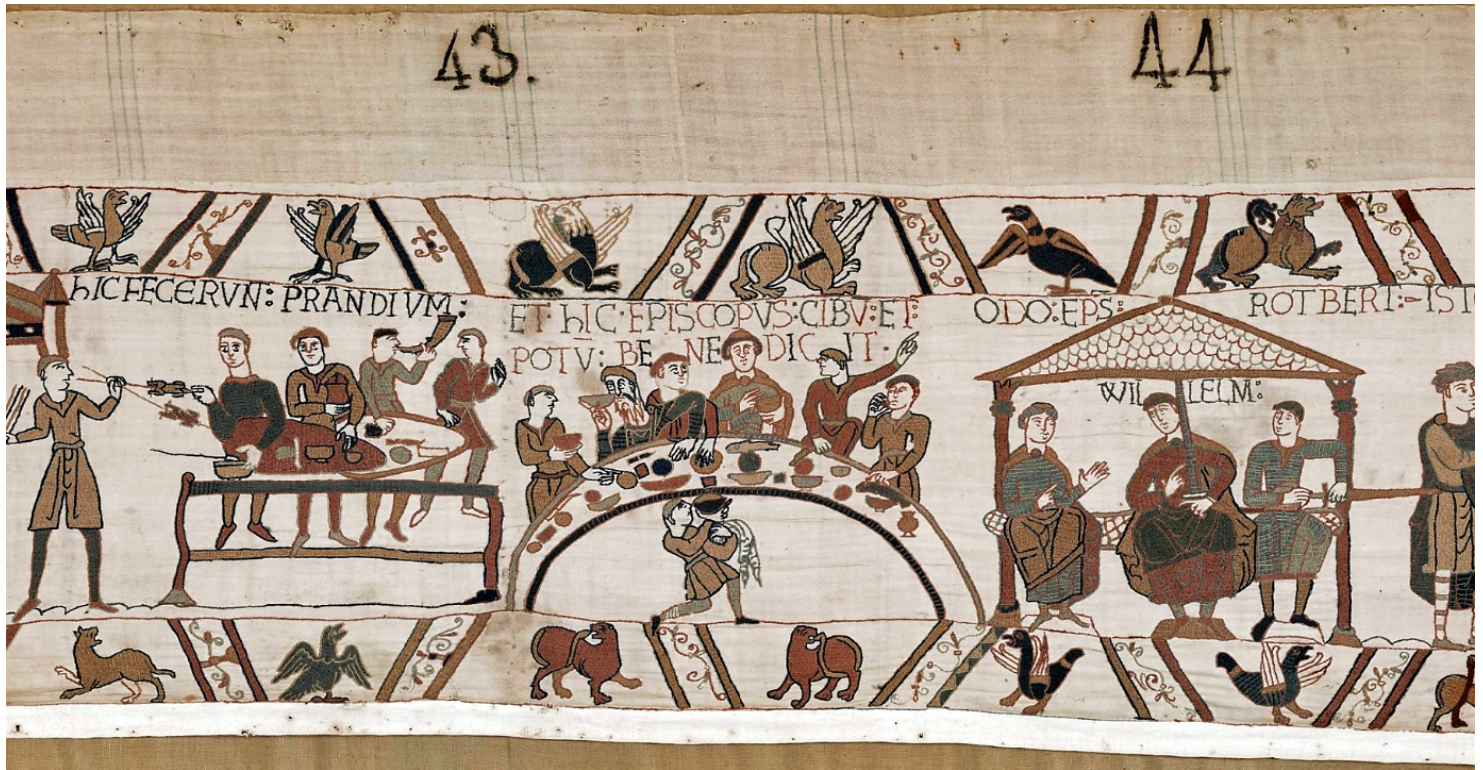 43.
44
hIC FECERVN: PRANDIVM:
ET hIC·EPISCOPVS:CIBV:ET:
POTV: BE NE DIC IT·
ODO:EPS:
WIL LELM:
ROTBERT:-IST